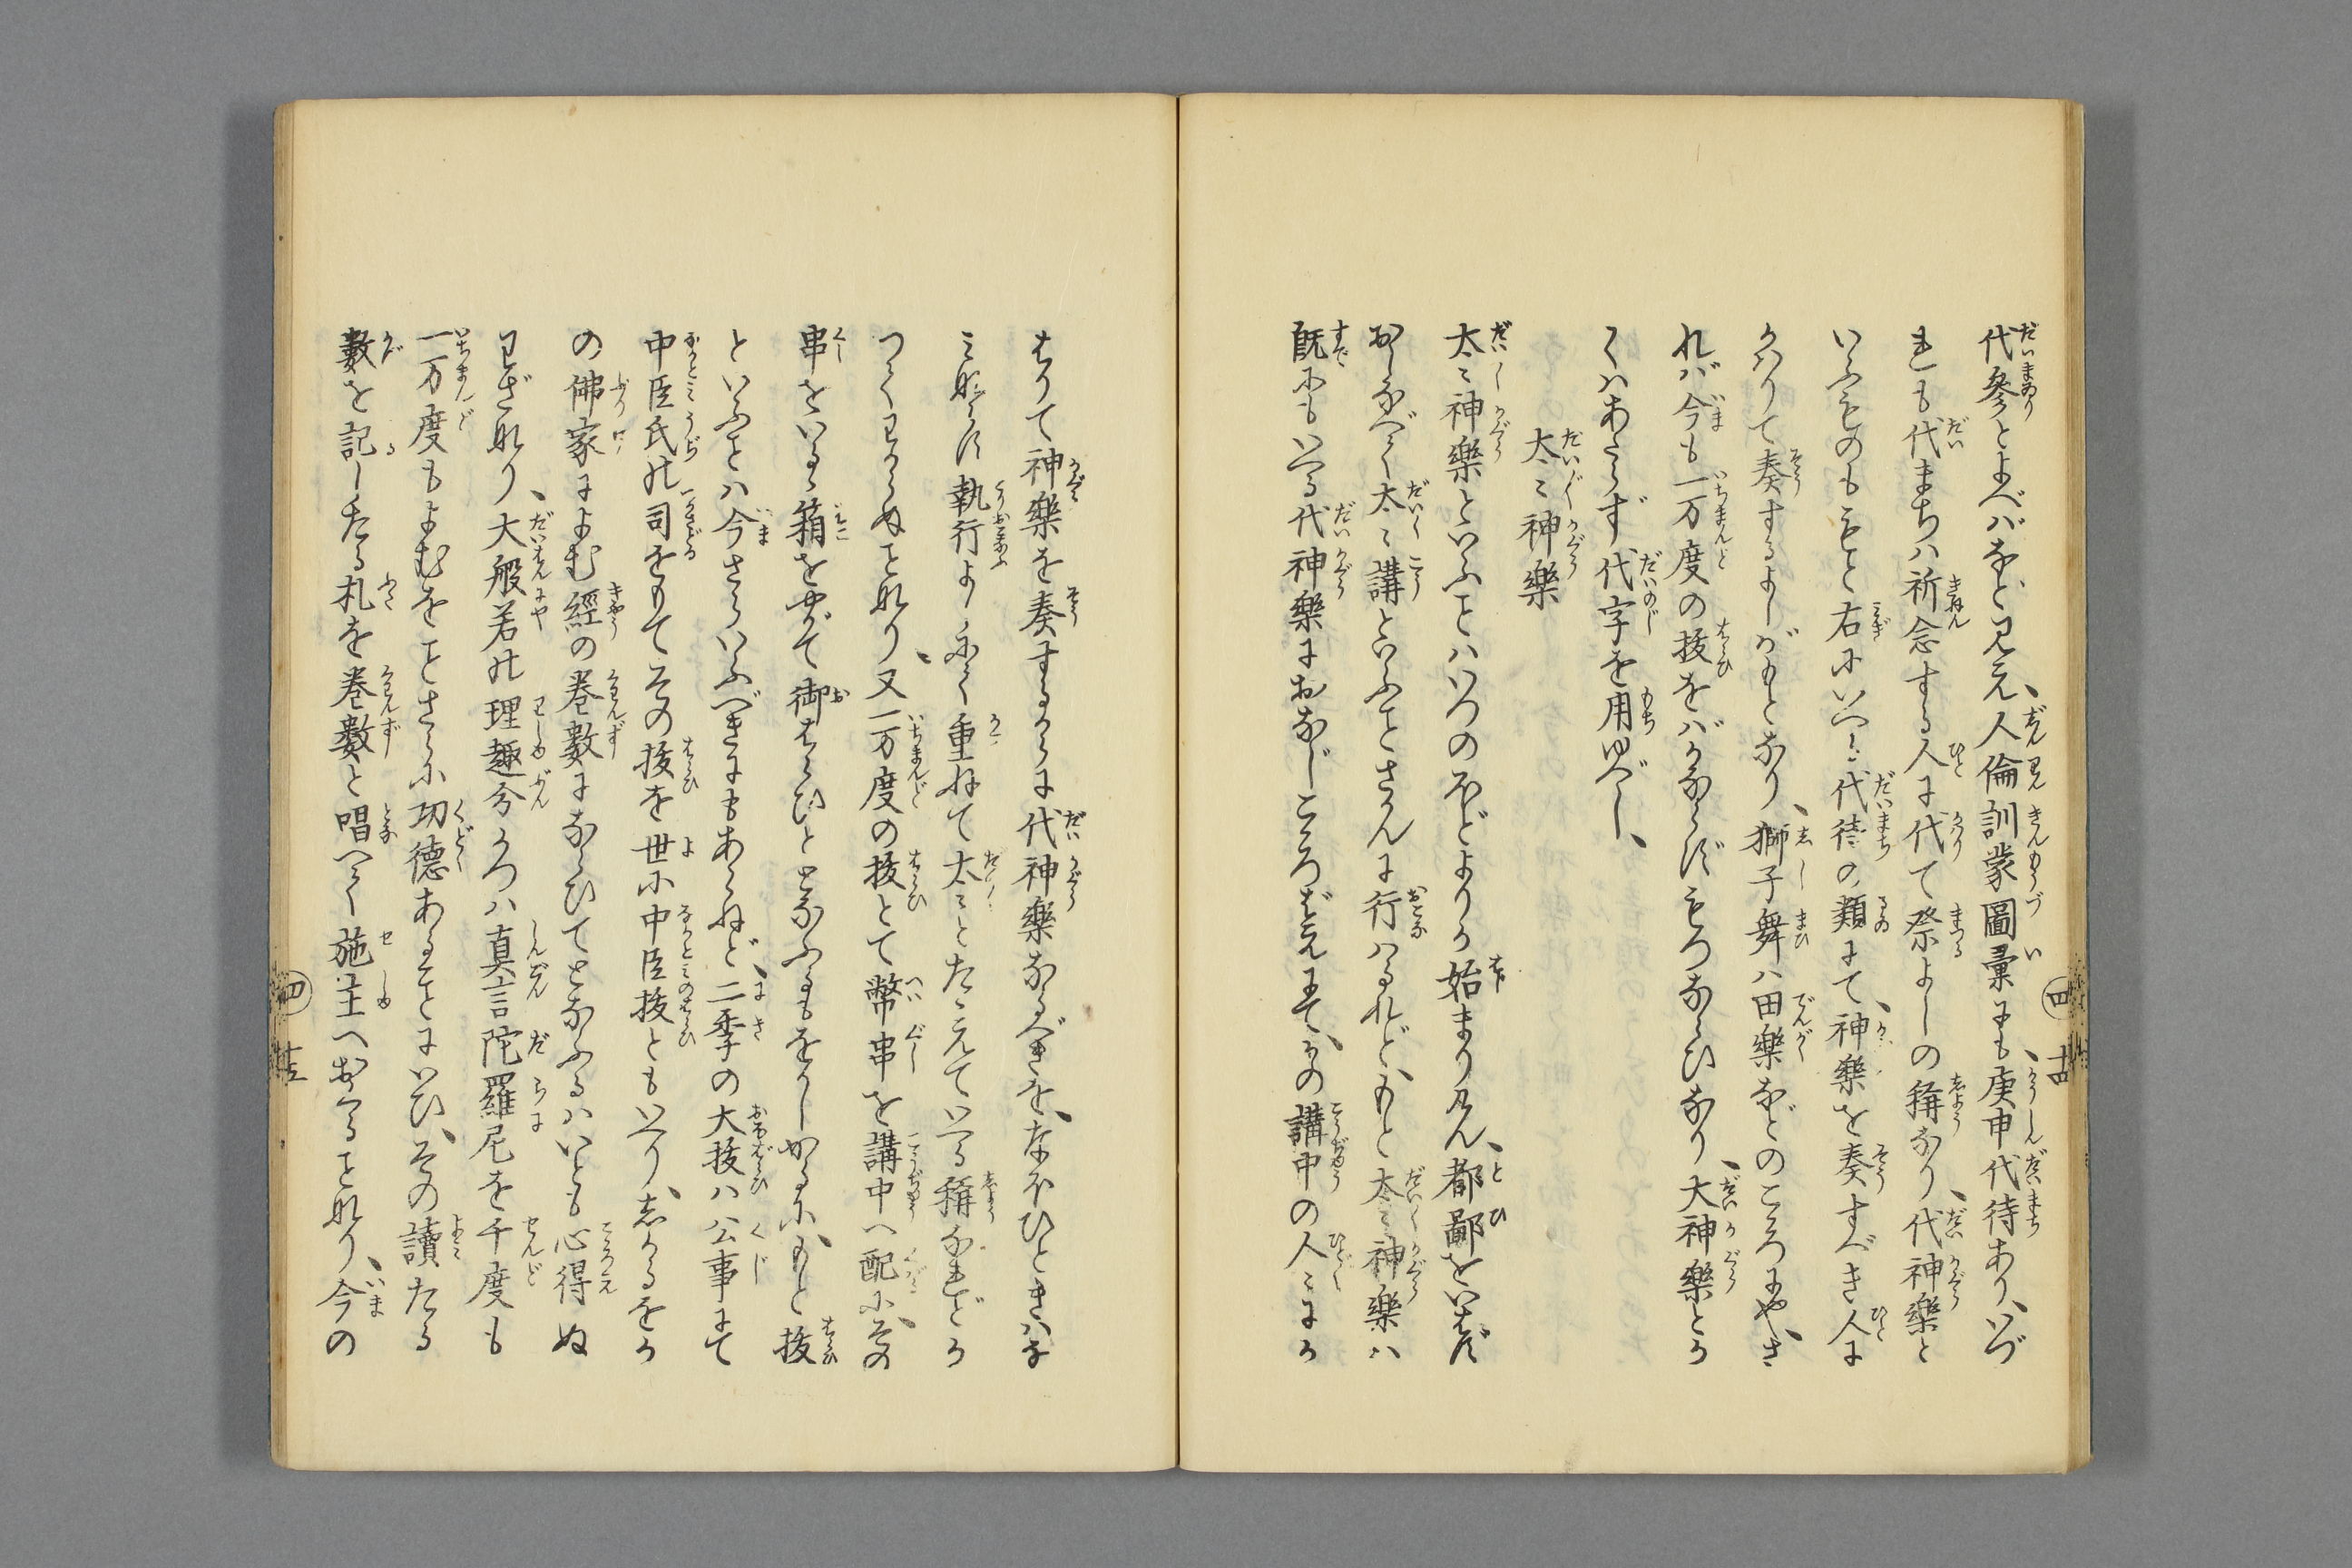 代參とよべばなど見え、人倫訓蒙圖彙にも、庚申代待あり、いづ
れも代まちハ祈念する人に代て祭よしの稱なり、代神樂と
いふものももと右にいへる代待の類にて、神樂を奏すべき人に
かハりて奏するよしがもとなり、獅子舞ハ田樂などのころにや、さ
れバ今も一万度の祓をバかならずもつならひなり、大神樂とか
くハあたらず代字を用ゆべし、
太〻神樂
太〻神樂といふことハいつのほどよりか始まりけん、都鄙をいはず
おしなべて太〻講といふことさかんに行ハるれど、もと太〻神樂ハ
既にもいへる代神樂におなじこころばえにて、かの講中の人〻にか
はりて神樂を奏するからに代神樂なるべきを、なほひときハこ
とさらに執行よしにて重ねて太〻ととなえていへる稱なれどか
つてわからぬことなり、又一万度の祓とて幣串を講中へ配に、その
串をいるゝ箱をやがて御はらひととなふるもをかしかるに、もと祓
といふことハ今さらいふべきにもあらねど、二季の大祓ハ公事にて
中臣氏の司をもてその祓を世に中臣祓ともいへり、しかるをか
の佛家によむ經の巻數にならひてとなふるハいとも心得ぬ
わざなり、大般若の理趣分かつハ真言陀羅尼を千度も
一万度もよむをことさらに功德あることにいひ、その讀たる
數を記したる札を巻數と唱へて施主へおくることなり、今の
四 十四
四 十五